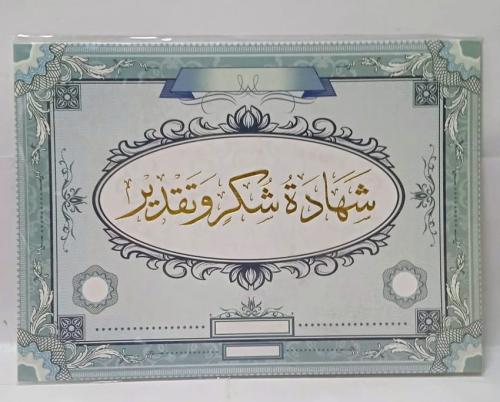 شَهَادَةُ شُكْرٍ وَتَقْدِيْر